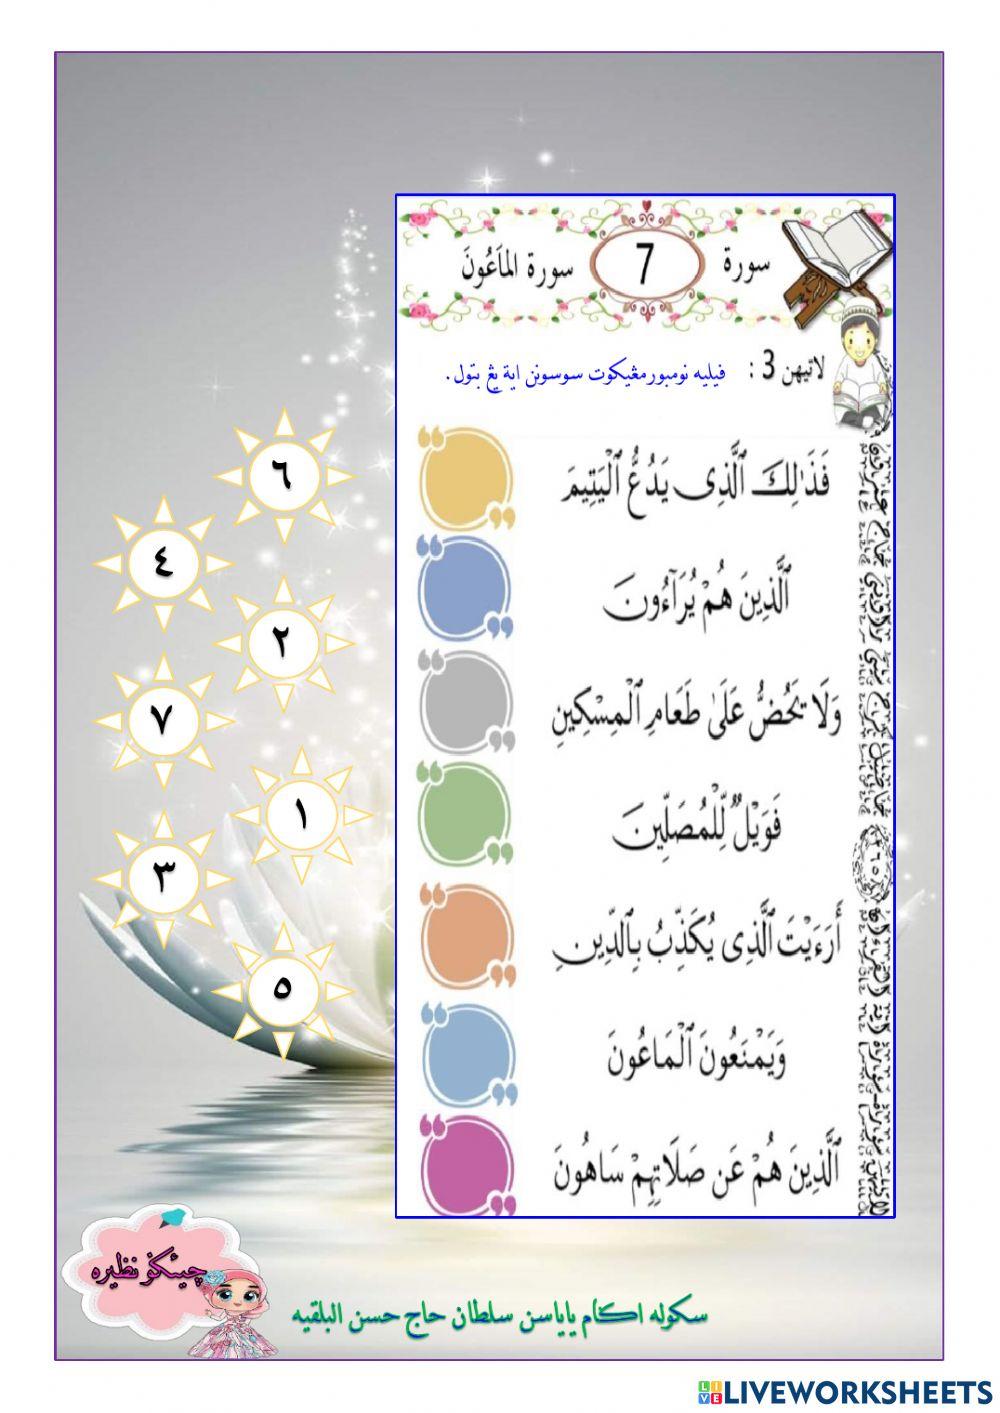 سورة 7 سورة الماَعُونَ
لاتيهن 3 : فيليه نومبور مڠيكوت سوسونن اية يڠ بتول.
فَذَٰلِكَ ٱلَّذِى يَدُعُّ ٱلْيَتِيمَ
ٱلَّذِينَ هُمْ يُرَآءُونَ
وَلَا يَحُضُّ عَلَىٰ طَعَامِ ٱلْمِسْكِينِ
فَوَيْلٌ لِّلْمُصَلِّينَ
أَرَءَيْتَ ٱلَّذِى يُكَذِّبُ بِٱلدِّينِ
وَيَمْنَعُونَ ٱلْمَاعُونَ
ٱلَّذِينَ هُمْ عَن صَلَاتِهِمْ سَاهُونَ
٦
٤
٢
٧
١
٣
٥
چيئکݢو نظيره
سکوله اݢام ياياسن سلطان حاج حسن البلقيه
LIVEWORKSHEETS